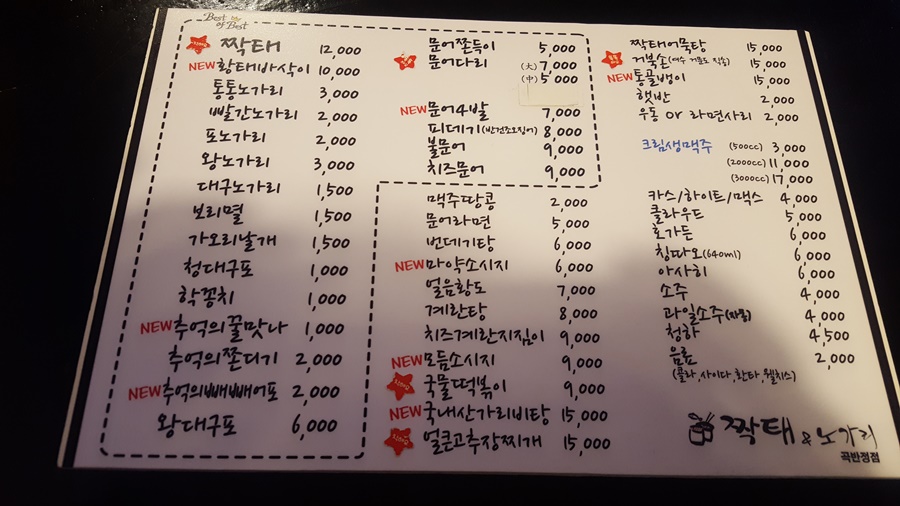 Best of Best
짝태 12,000
NEW 황태바삭이 10,000
통통노가리 3,000
빨간노가리 2,000
포노가리 2,000
왕노가리 3,000
대구노가리 1,500
보리멸 1,500
가오리날개 1,500
청대구포 1,000
학꽁치 1,000
NEW 추억의꿀맛나 1,000
추억의쫀디기 2,000
NEW 추억의빼빼어포 2,000
왕대구포 6,000
문어쫀듸이 5,000
문어다리 (大) 7,000
(中) 5,000
NEW 문어4발 7,000
피데기(반건조오징어) 8,000
불문어 9,000
치즈문어 9,000
맥주땅콩 2,000
문어라면 5,000
번데기탕 6,000
NEW 마약소시지 6,000
얼음황도 7,000
계란탕 8,000
치즈계란지짐이 9,000
NEW 모듬소시지 9,000
국물떡볶이 9,000
NEW 국내산가리비탕 15,000
얼큰고추장찌개 15,000
짝태어묵탕 15,000
거북손(여수 거문도 직송) 15,000
NEW 통골뱅이 15,000
햇반 2,000
우동 or 라면사리 2,000
크림생맥주 (500cc) 3,000
(2000cc) 11,000
(3000cc) 17,000
카스/하이트/맥스 4,000
클라우드 5,000
호가든 6,000
칭따오(640ml) 6,000
아사히 6,000
소주 4,000
과일소주(자몽) 4,000
청하 4,500
음료 2,000
(콜라,사이다,환타,웰치스)
짝태 & 노가리
곡반정점